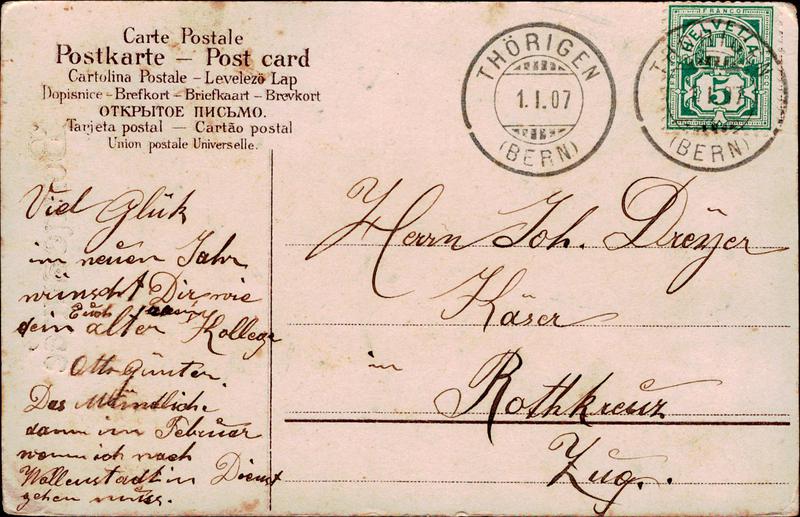 Carte Postale
Postkarte – Post card
Cartolina Postale – Levelező Lap
Dopisnice – Brefkort – Briefkaart – Brevkort
ОТКРЫТОЕ ПИСЬМО.
Tarjeta postal – Cartão postal
Union postale Universelle.
THÖRIGEN
1.I.07
(BERN)
FRANCO
HELVETIA
5
(BERN)
Viel Glük
im neuen Jahr
wünscht Dir wie
Euch
dein alter Kollege
Otto Günter.
Das Mündliche
dann im Februar
wenn ich nach
Wallenstadt in Dienst
gehen muss.
Herrn Joh. Dreyer
Käser
in
Rothkreuz
Zug.